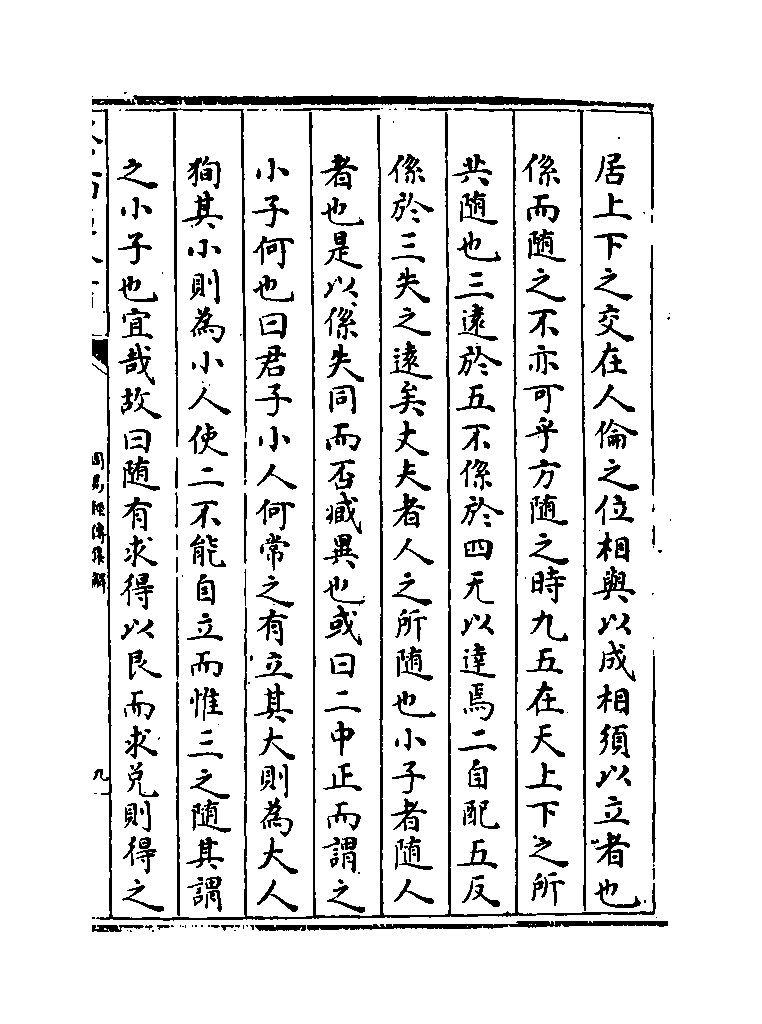 居上下之交在人倫之位相與以成相須以立者也
係而隨之不亦可乎方隨之時九五在天上下之所
共隨也三遠於五不係於四无以達焉二自配五反
係於三失之遠矣丈夫者人之所隨也小子者隨人
者也是以係失同而否臧異也或曰二中正而謂之
小子何也曰君子小人何常之有立其大則為大人
狥其小則為小人使二不能自立而惟三之隨其謂
之小子也宜哉故曰隨有求得以艮而求兌則得之
周易經傳集解
九